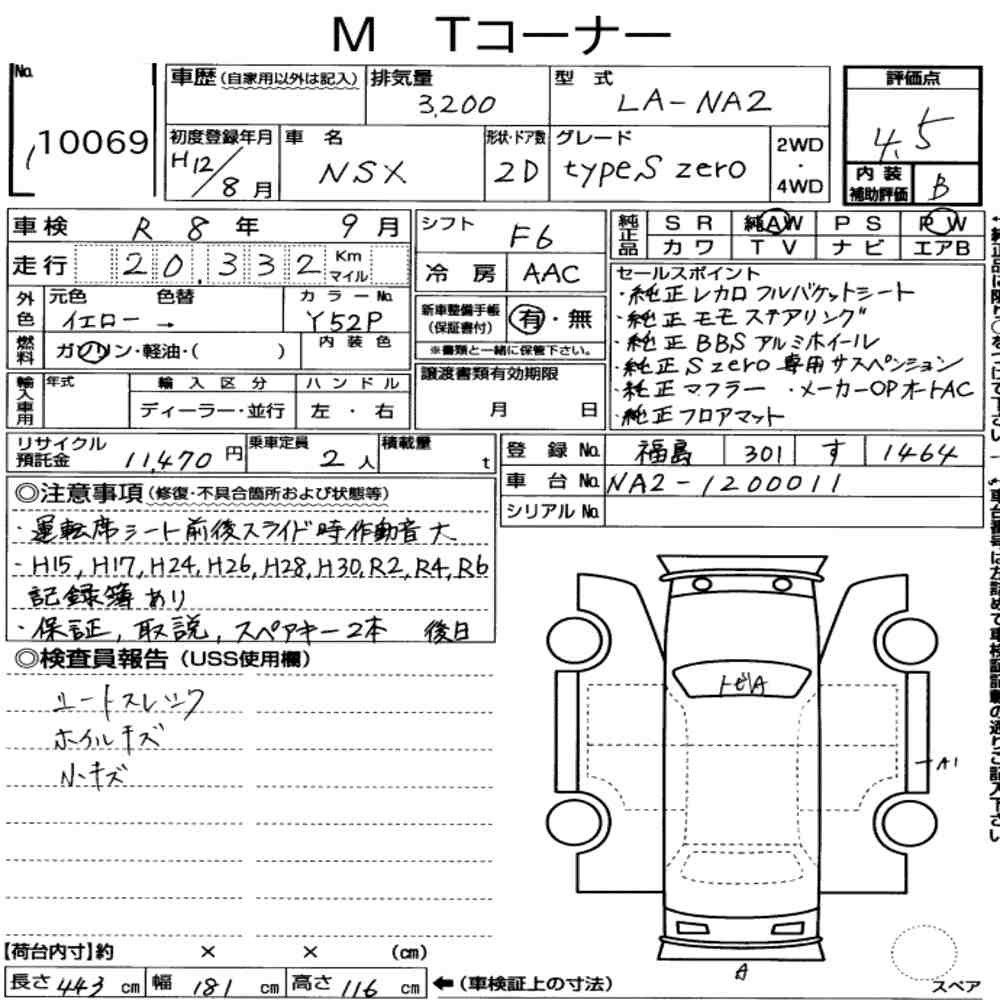 M Tコーナー
No.
10069
車歴(自家用以外は記入)
排気量
3,200
型式
LA-NA2
評価点
4.5
内装
補助評価
B
初度登録年月
H12/8月
車名
NSX
形状・ドア数
2D
グレード
typeS zero
2WD
・
4WD
車検 R 8年 9月
走行 20,332 Km マイル
シフト
F6
冷房 AAC
純正品
SR 純AW PS PW
カワ TV ナビ エアB
外色
元色 色替
イエロー →
カラーNo.
Y52P
燃料
ガソリン・軽油・( )
内装色
新車整備手帳
(保証書付)
有・無
※書類と一緒に保管下さい。
セールスポイント
・純正レカロフルバケットシート
・純正モモステアリング
・純正BBSアルミホイール
・純正Szero専用サスペンション
・純正マフラー ・メーカーOPオートAC
・純正フロアマット
輸入車用
年式
輸入区分
ディーラー・並行
ハンドル
左・右
譲渡書類有効期限
月 日
リサイクル
預託金 11,470円
乗車定員
2人
積載量
t
登録No. 福島 301 す 1464
車台No. NA2-1200011
シリアルNo.
◎注意事項(修復・不具合箇所および状態等)
・運転席シート前後スライド時作動音大
・H15,H17,H24,H26,H28,H30,R2,R4,R6
記録簿あり
・保証,取説,スペアキー2本 後日
◎検査員報告(USS使用欄)
シートスレ
ホイルキズ
小キズ
トビA
A1
A
スペア
【荷台内寸】約 × × (cm)
長さ 443 cm 幅 181 cm 高さ 116 cm ←(車検証上の寸法)